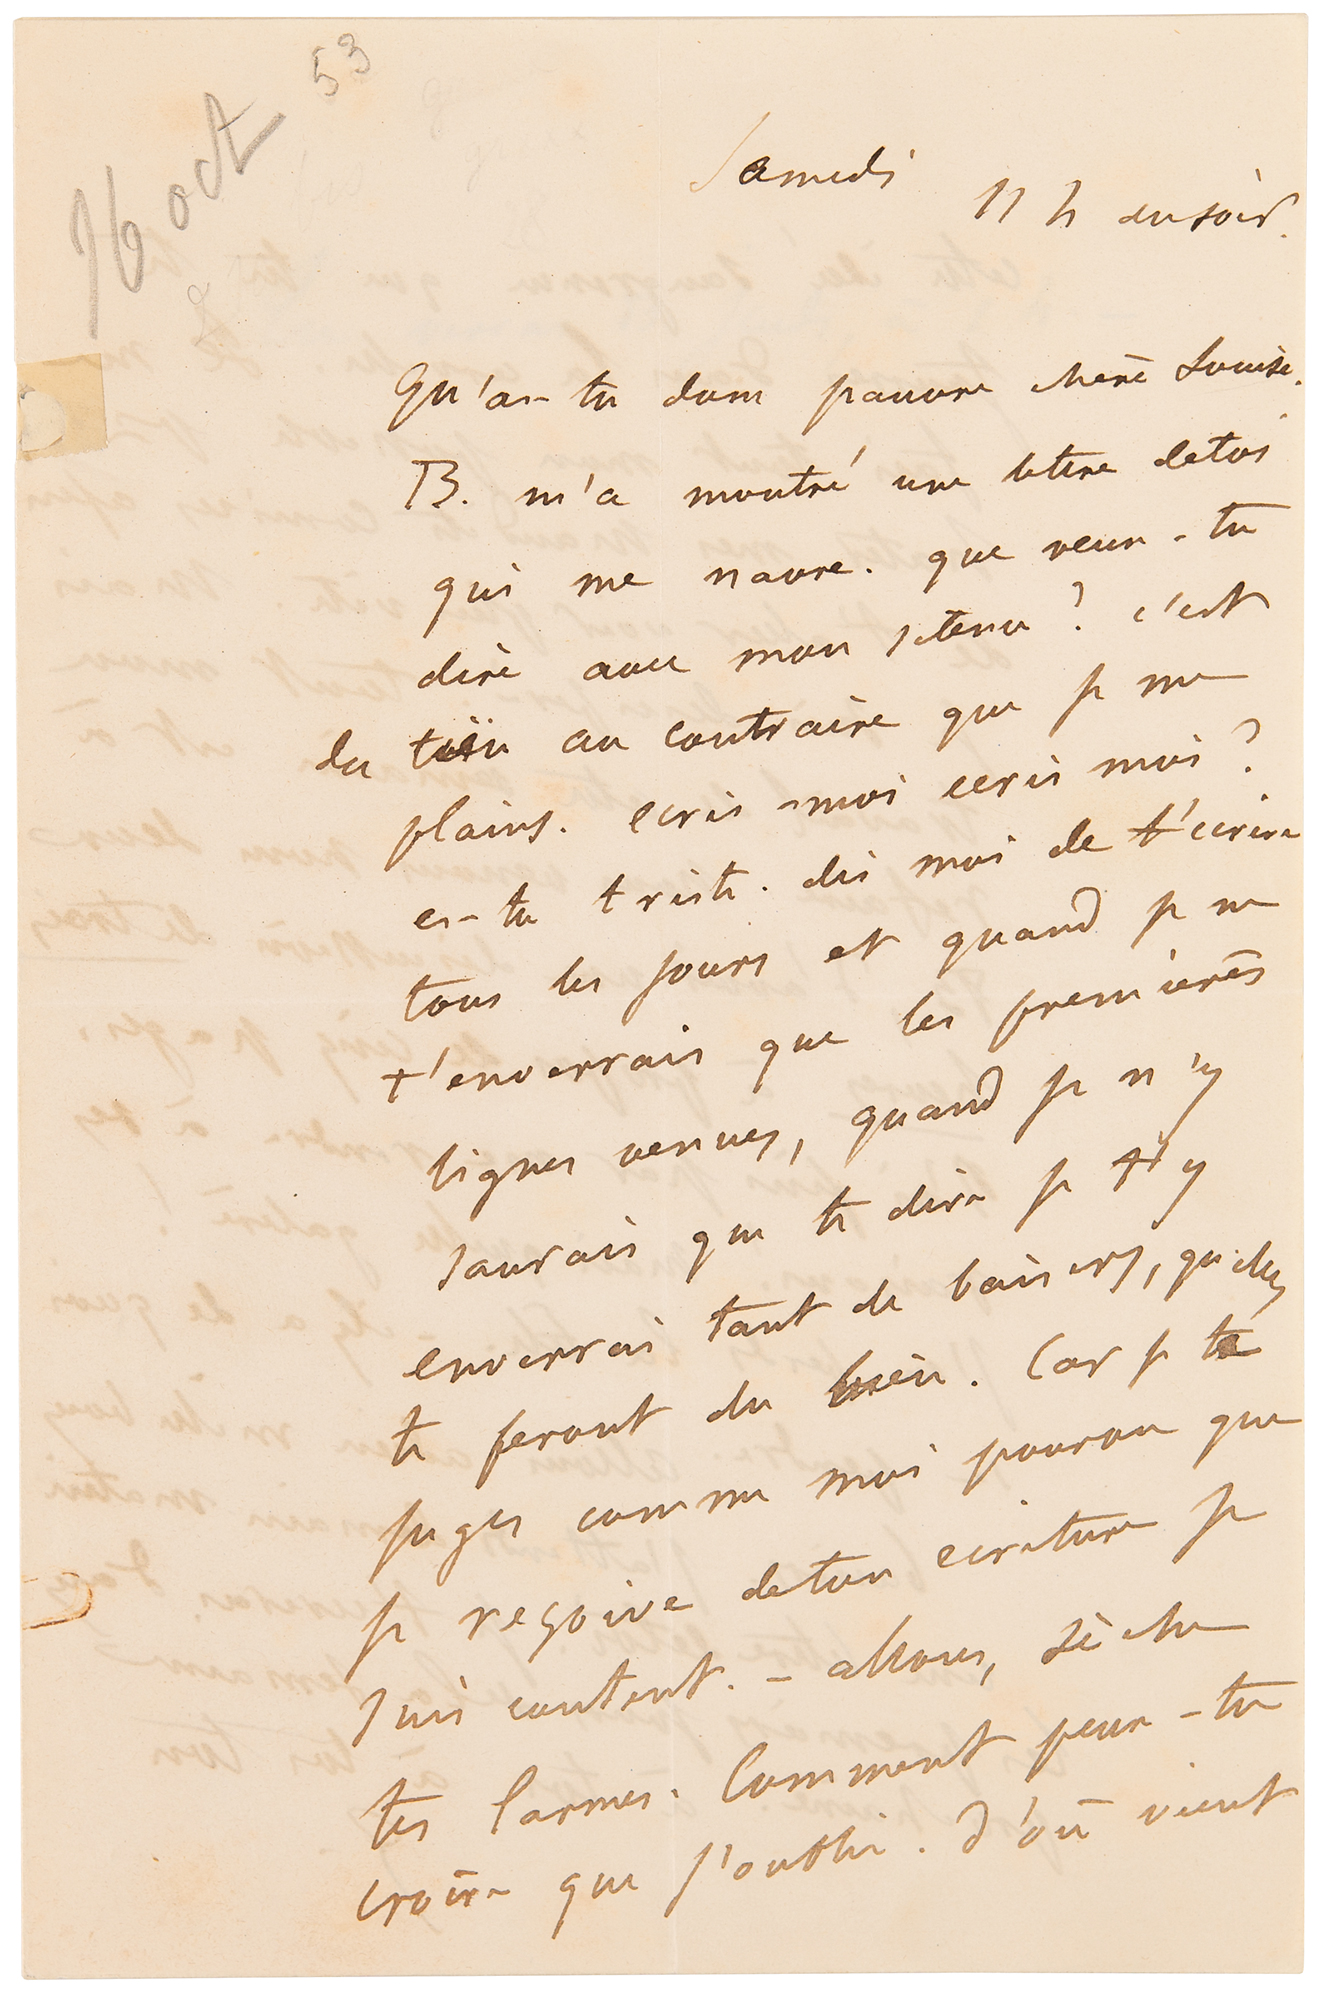 16 oct 53
Samedi
11 h du soir.
Qu'as-tu donc pauvre chère Louise.
B. m'a montré une lettre de toi
qui me navre. que veux-tu
dire avec mon silence ? c'est
du tien au contraire que je me
plains. ecris-moi ecris moi ?
es-tu triste. dis moi de t'ecrire
tous les jours et quand je ne
t'enverrais que les premières
lignes venues, quand je n'y
saurais que te dire je t'y
enverrai tant de baisers, qu'elles
te feront du bien. Car je te
juges comme moi pourvu que
je reçoive de ton ecriture je
suis content. – allons, sèche
tes larmes. Comment peux-tu
croire que j'oublie. D'où vient